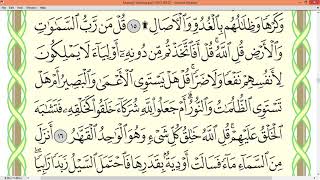 وَكَرْهًا وَظِلَٰلُهُم بِٱلْغُدُوِّ وَٱلْءَاصَالِ ۩ ١٥ قُلْ مَن رَّبُّ ٱلسَّمَٰوَٰتِ
وَٱلْأَرْضِ قُلِ ٱللَّهُ ۚ قُلْ أَفَٱتَّخَذْتُم مِّن دُونِهِۦٓ أَوْلِيَآءَ لَا يَمْلِكُونَ
لِأَنفُسِهِمْ نَفْعًا وَلَا ضَرًّا ۚ قُلْ هَلْ يَسْتَوِى ٱلْأَعْمَىٰ وَٱلْبَصِيرُ أَمْ هَلْ
تَسْتَوِى ٱلظُّلُمَٰتُ وَٱلنُّورُ ۗ أَمْ جَعَلُوا۟ لِلَّهِ شُرَكَآءَ خَلَقُوا۟ كَخَلْقِهِۦ فَتَشَٰبَهَ
ٱلْخَلْقُ عَلَيْهِمْ ۚ قُلِ ٱللَّهُ خَٰلِقُ كُلِّ شَىْءٍ وَهُوَ ٱلْوَٰحِدُ ٱلْقَهَّٰرُ ١٦ أَنزَلَ
مِنَ ٱلسَّمَآءِ مَآءً فَسَالَتْ أَوْدِيَةٌۢ بِقَدَرِهَا فَٱحْتَمَلَ ٱلسَّيْلُ زَبَدًا رَّابِيًا ۚ